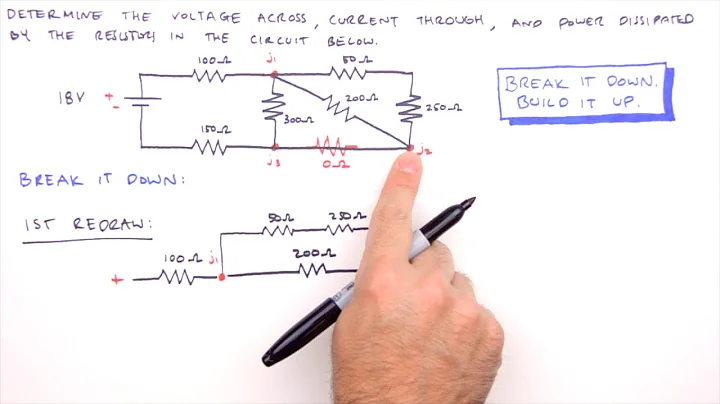 DETERMINE THE VOLTAGE ACROSS, CURRENT THROUGH, AND POWER DISSIPATED
BY THE RESISTORS IN THE CIRCUIT BELOW.
100Ω
j1
50Ω
BREAK IT DOWN.
BUILD IT UP.
18V
+
-
200Ω
250Ω
300Ω
150Ω
j3
0Ω
j2
BREAK IT DOWN:
1ST REDRAW:
50Ω
250Ω
100Ω
j1
200Ω
+